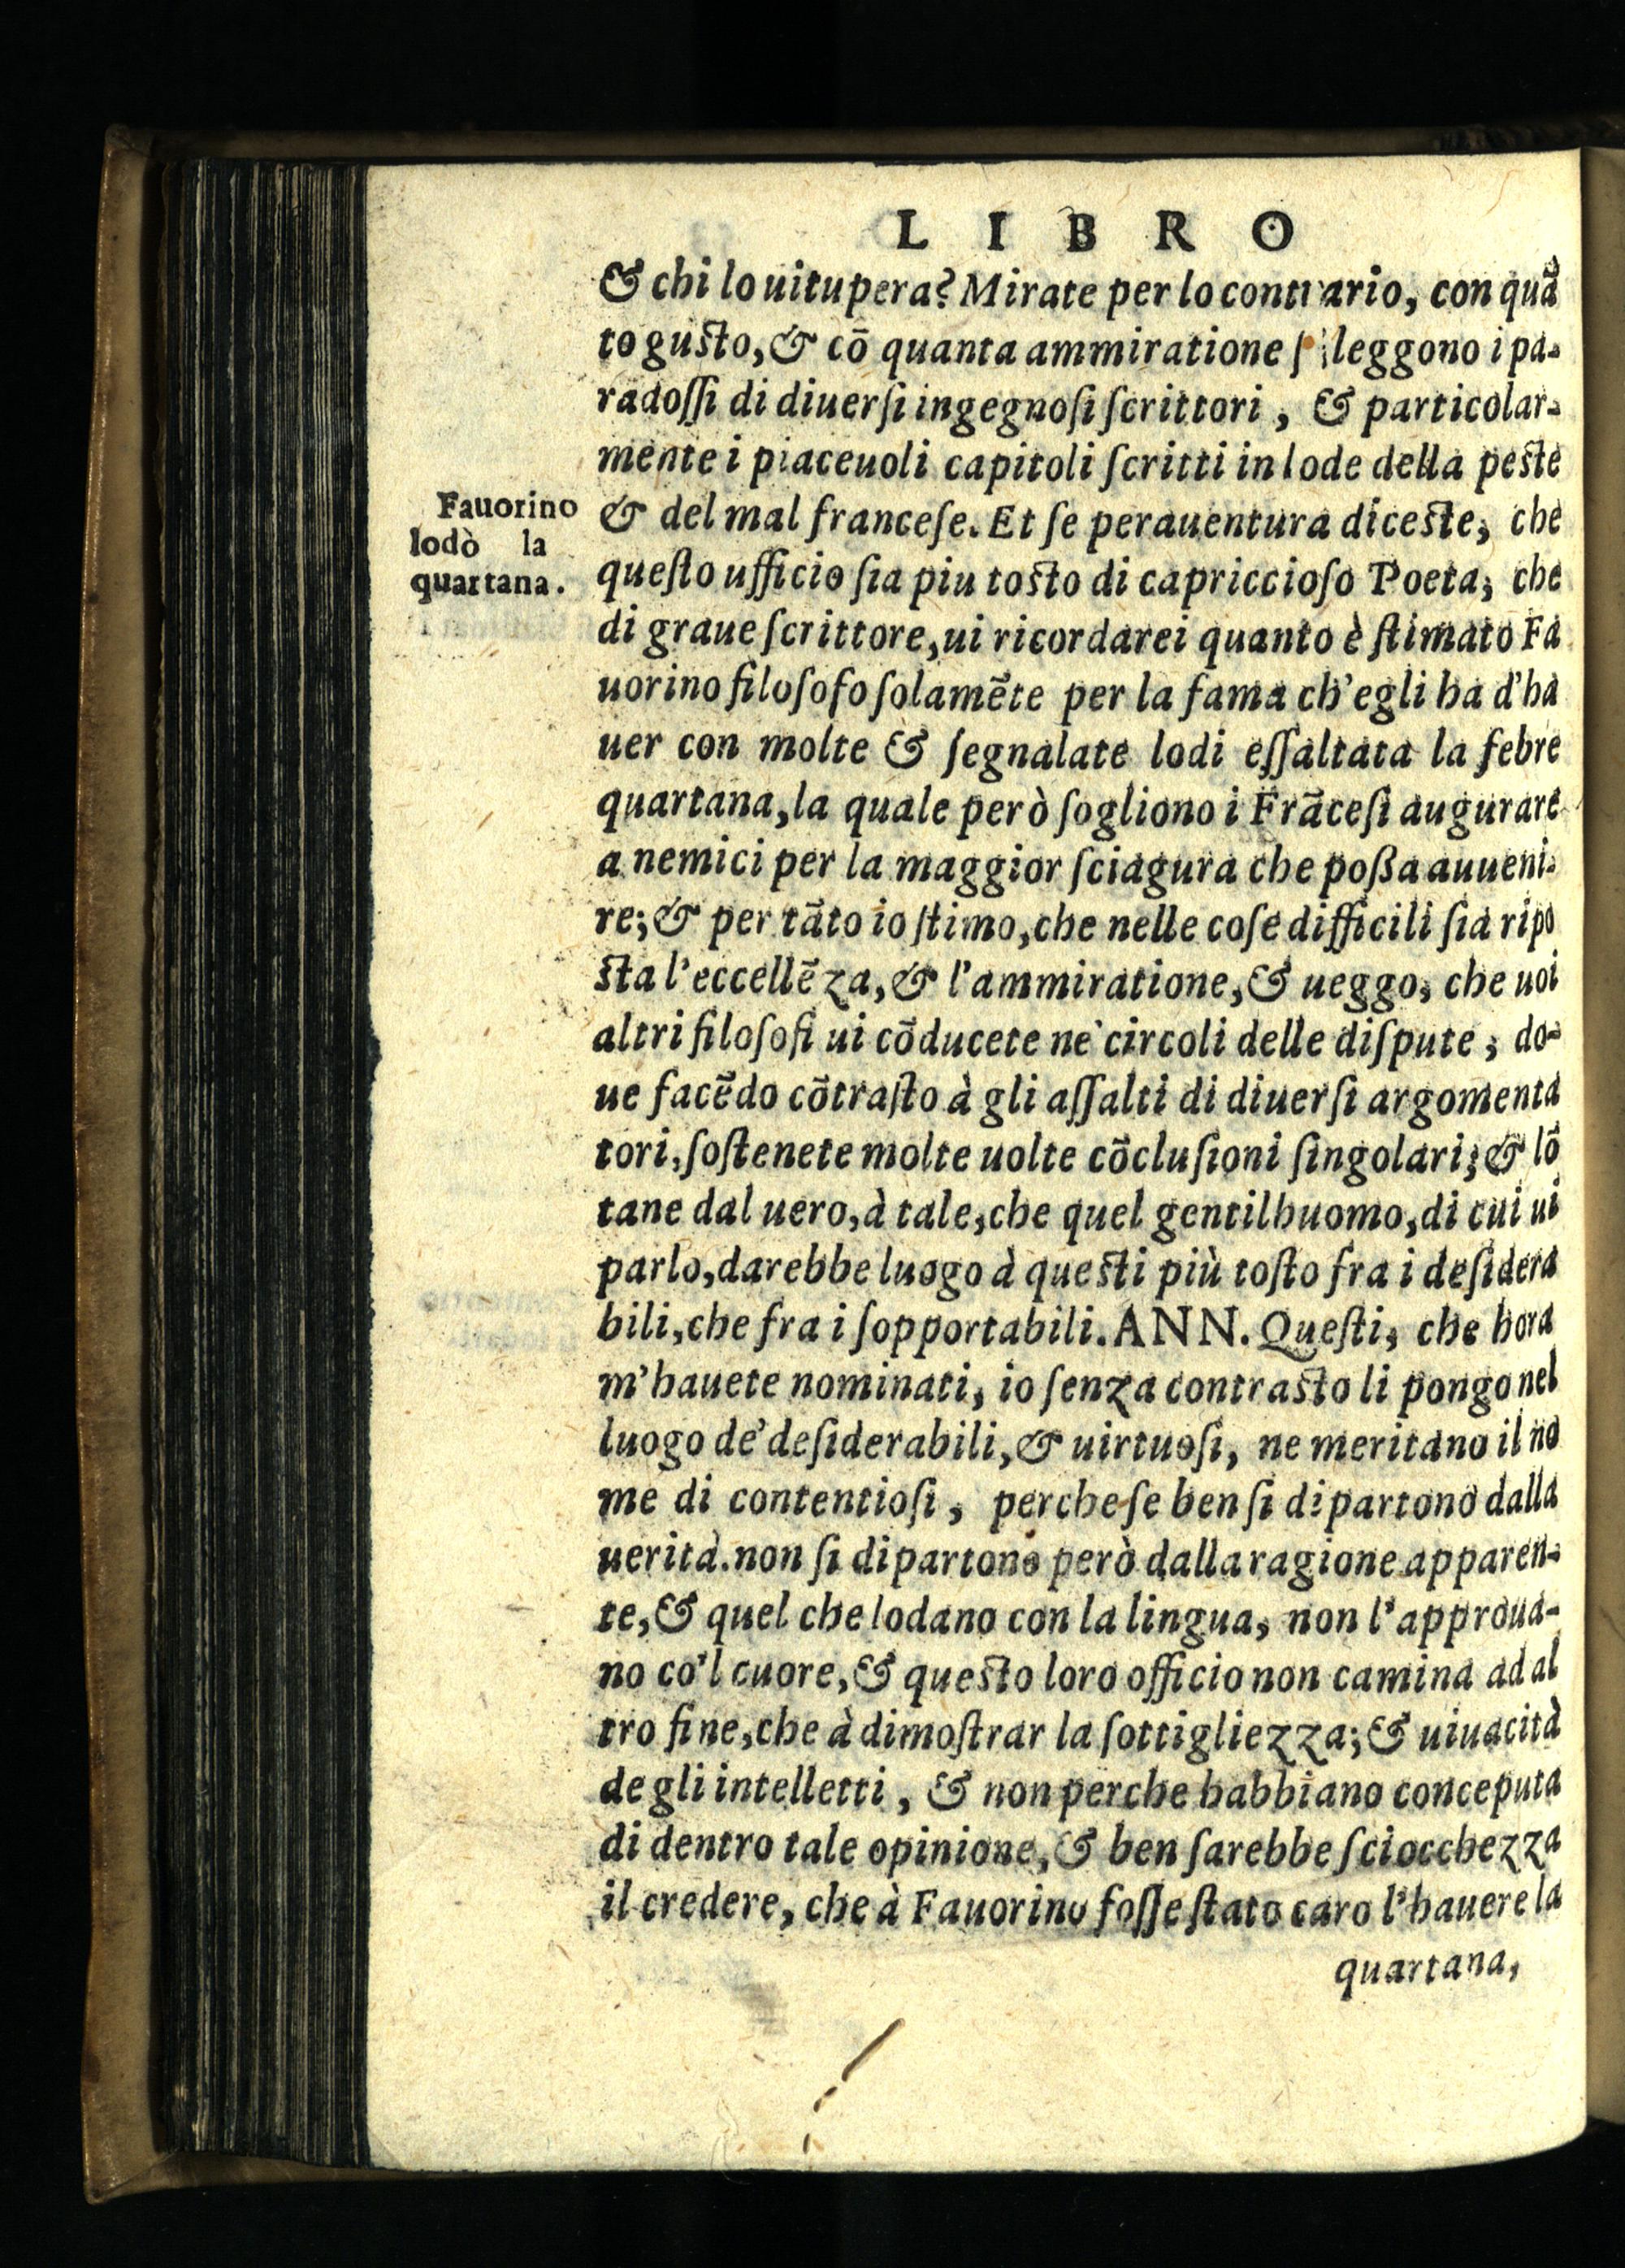 LIBRO
& chi lo uitupera? Mirate per lo contrario, con quã
to gusto, & cõ quanta ammiratione si leggono i pa-
radoſſi di diuerſi ingegnoſi ſcrittori, & particolar-
mente i piaceuoli capitoli ſcritti in lode della peste
Fauorino
lodò la
quartana.
& del mal franceſe. Et ſe perauentura diceste, che
queſto ufficio ſia piu tosto di capriccioſo Poeta, che
di graue ſcrittore, ui ricordarei quanto è ſtimato Fa
uorino filoſofo ſolamẽte per la fama ch'egli ha d'ha
uer con molte & ſegnalate lodi eſſaltata la febre
quartana, la quale però ſogliono i Frãceſi augurare
a nemici per la maggior ſciagura che poßa auueni-
re; & per tãto io ſtimo, che nelle coſe difficili ſia ripo
sta l'eccellẽza, & l'ammiratione, & ueggo, che uoi
altri filoſofi ui cõducete ne' circoli delle diſpute, do-
ue facẽdo cõtraſto à gli aſſalti di diuerſi argomenta
tori, ſoſtenete molte uolte cõcluſioni ſingolari; & lõ
tane dal uero, à tale, che quel gentilhuomo, di cui ui
parlo, darebbe luogo à questi più toſto fra i deſidera
bili, che fra i ſopportabili. ANN. Queſti, che hora
m'hauete nominati, io ſenza contrasto li pongo nel
luogo de' deſiderabili, & uirtuoſi, ne meritano il no
me di contentioſi, perche ſe ben ſi dipartono dalla
uerità. non ſi dipartono però dalla ragione apparen-
te, & quel che lodano con la lingua, non l'approua-
no co'l cuore, & questo loro officio non camina ad al
tro fine, che à dimoſtrar la ſottigliezza; & uiuacità
de gli intelletti, & non perche habbiano conceputa
di dentro tale opinione, & ben ſarebbe ſciocchezza
il credere, che à Fauorino foſſe ſtato caro l'hauere la
quartana,